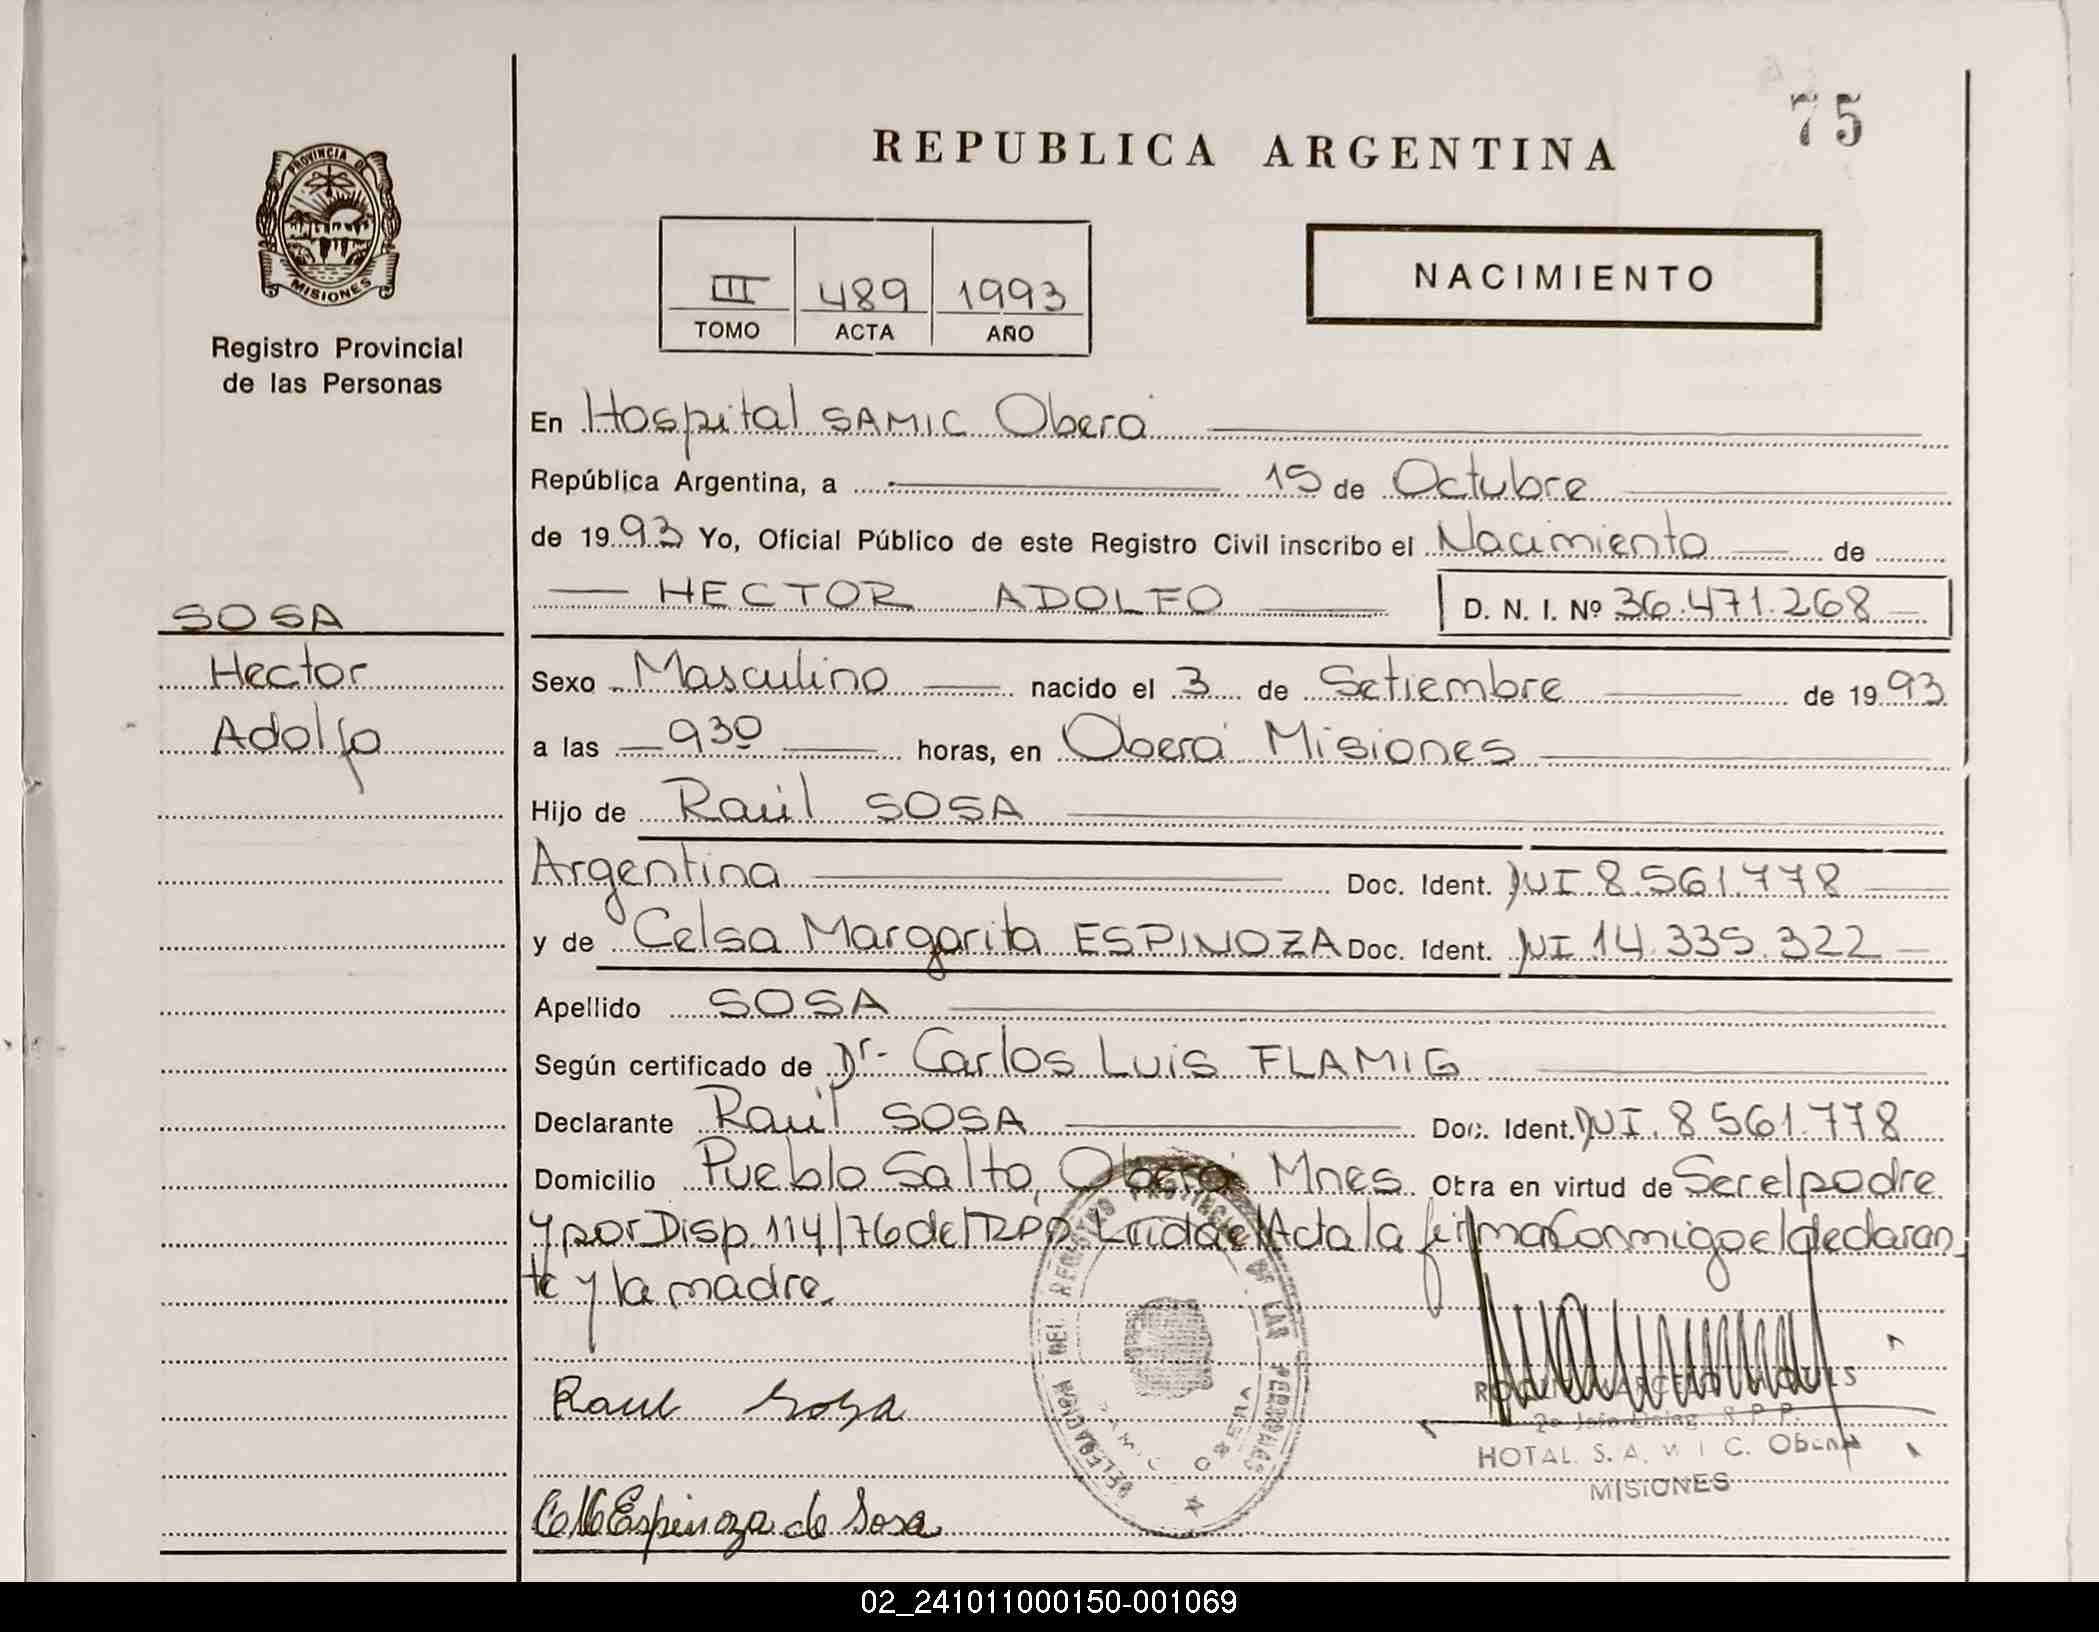 75
REPUBLICA ARGENTINA
PROVINCIA DE
MISIONES
Registro Provincial
de las Personas
III 489 1993
TOMO ACTA AÑO
NACIMIENTO
En Hospital SAMIC Oberá
República Argentina, a 15 de Octubre
de 1993 Yo, Oficial Público de este Registro Civil inscribo el Nacimiento de
HECTOR ADOLFO D. N. I. Nº 36.471.268
SOSA
Hector
Adolfo
Sexo Masculino nacido el 3 de Setiembre de 1993
a las 930 horas, en Oberá Misiones
Hijo de Raúl SOSA
Argentina Doc. Ident. DNI 8.561.778
y de Celsa Margarita ESPINOZA Doc. Ident. DNI 14.335.322
Apellido SOSA
Según certificado de Dr. Carlos Luis FLAMIG
Declarante Raúl SOSA Doc. Ident. DNI. 8561.778
Domicilio Pueblo Salto, Oberá Mnes. Obra en virtud de Ser el padre
y por Disp. 114/76 del RPP. Leída el Acta la firma Conmigo el declaran
te y la madre.
DELEGACION DEL REGISTRO PROVINCIAL DE LAS PERSONAS
SAMIC OBERA
Raul Sosa
R.P.P.
HOTAL. S. A. M I C. Oberá
MISIONES
Espinoza de Sosa
02_241011000150-001069